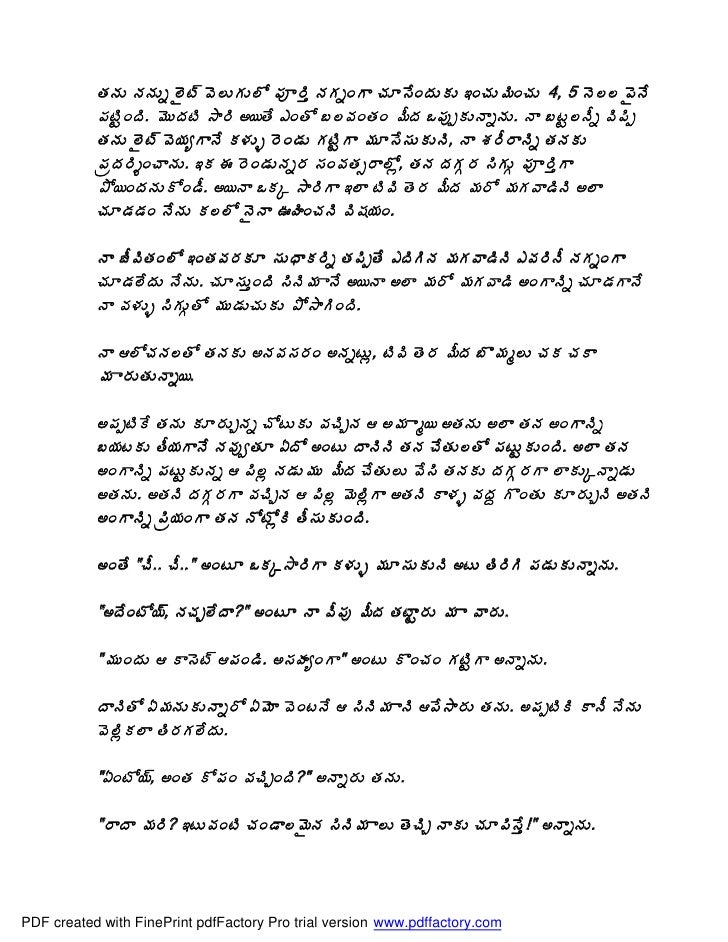 తను నన్ను లైట్ వెలుగులో పూర్తి నగ్నంగా చూసేందుకు ఇంచుమించు 4, 5 నెలల పైనే
పట్టింది. మొదటి సారి అయితే ఎంతో బలవంతం మీద ఒప్పుకున్నాను. నా బట్టలన్నీ విప్పి
తను లైట్ వెయ్యగానే కళ్ళు రెండు గట్టిగా మూసేసుకుని, నా శరీరాన్ని తనకు
ప్రదర్శించాను. ఇక ఈ రెండున్నర సంవత్సరాల్లో, తన దగ్గర సిగ్గు పూర్తిగా
పోయిందనుకోండీ. అయినా ఒక్క సారిగా ఇలా టివి తెర మీద మరో మగవాడిని అలా
చూడడం నేను కలలో నైనా ఊహించని విషయం.
నా జీవితంలో ఇంతవరకూ సుధాకర్ని తప్పితే ఎదిగిన మగవాడిని ఎవరినీ నగ్నంగా
చూడలేదు నేను. చూస్తుంది సినిమానే అయినా అలా మరో మగవాడి అంగాన్ని చూడగానే
నా వళ్ళు సిగ్గుతో ముడుచుకు పోసాగింది.
నా ఆలోచనలతో తనకు అనవసరం అన్నట్లు, టివి తెర మీద బొమ్మలు చక చకా
మారుతున్నాయి.
అప్పటికే తను కూర్చున్న చోటుకు వచ్చిన ఆ అమ్మాయి అతను అలా తన అంగాన్ని
బయటకు తీయగానే నవ్వుతూ ఏదో అంటు దానిని తన చేతులతో పట్టుకుంది. అలా తన
అంగాన్ని పట్టుకున్న ఆ పిల్ల నడుము మీద చేతులు వేసి తనకు దగ్గరగా లాక్కున్నాడు
అతను. అతని దగ్గరగా వచ్చిన ఆ పిల్ల మెల్లిగా అతని కాళ్ళ వద్ద గొంతు కూర్చుని అతని
అంగాన్ని ప్రియంగా తన నోట్లోకి తీసుకుంది.
అంతే "చీ.. చీ.." అంటూ ఒక్క సారిగా కళ్ళు మూసుకుని అటు తిరిగి పడుకున్నాను.
"అదేంటోయ్, నచ్చలేదా?" అంటూ నా వీపు మీద తట్టారు మా వారు.
"ముందు ఆ కాసెట్ ఆపండి. అసహ్యంగా" అంటు కొంచం గట్టిగా అన్నాను.
దానితో ఏమనుకున్నారో ఏమో వెంటనే ఆ సినిమాని ఆపేసారు తను. అప్పటికి కానీ నేను
వెల్లికలా తిరగలేదు.
"ఏంటోయ్, అంత కోపం వచ్చింది?" అన్నారు తను.
"రాదా మరి? ఇటువంటి చండాలమైన సినిమాలు తెచ్చి నాకు చూపిస్తే!" అన్నాను.
PDF created with FinePrint pdfFactory Pro trial version www.pdffactory.com